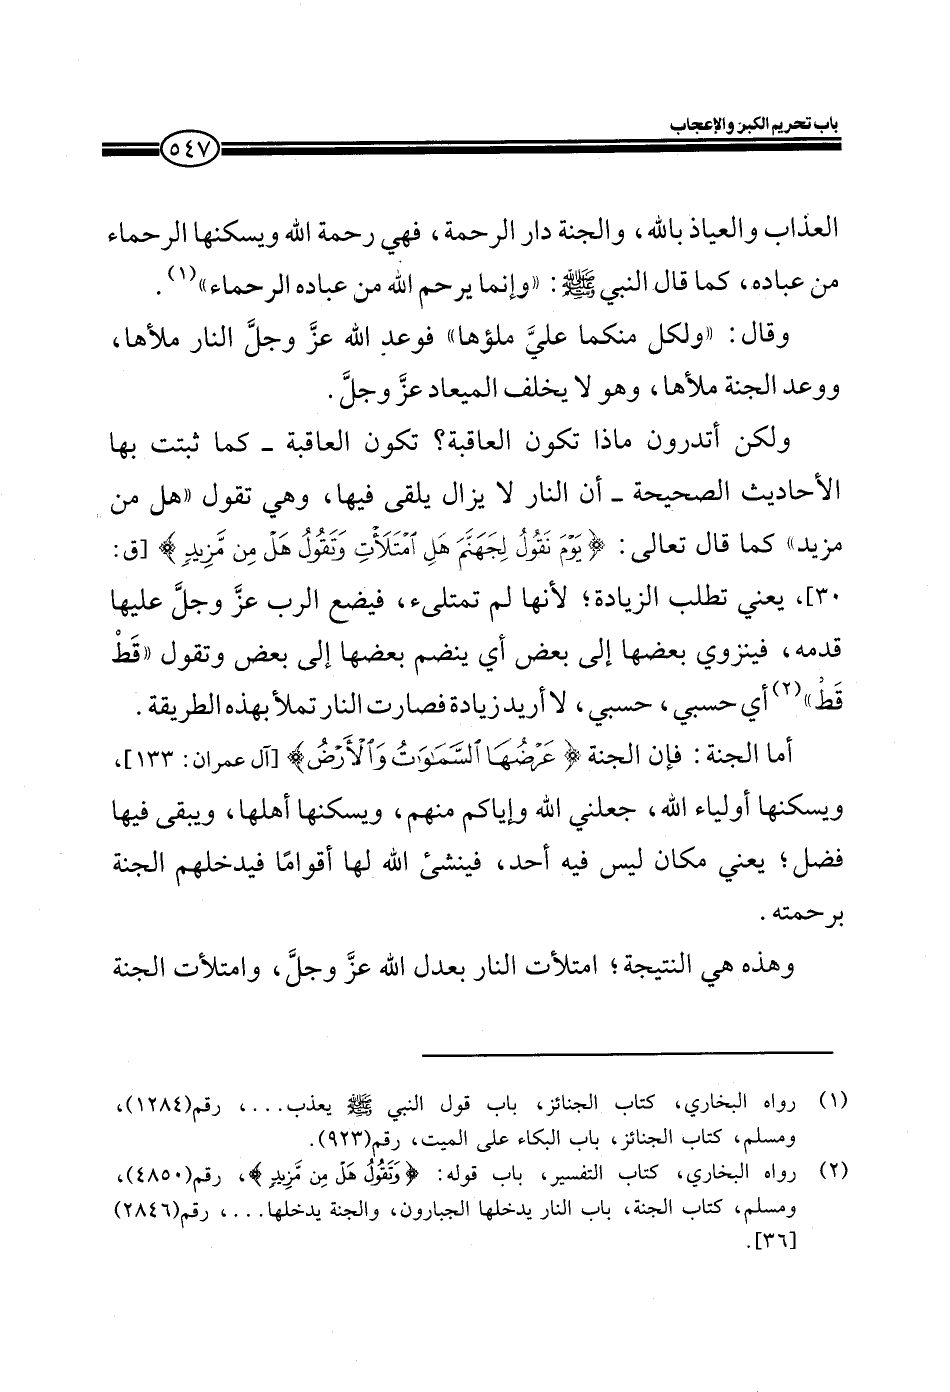 باب تحريم الكبر والإعجاب
٥٤٧
العذاب والعياذ بالله، والجنة دار الرحمة، فهي رحمة الله ويسكنها الرحماء
من عباده، كما قال النبي ﷺ: «وإنما يرحم الله من عباده الرحماء»(١).
وقال: «ولكل منكما عليَّ ملؤها» فوعد الله عزَّ وجلَّ النار ملأها،
ووعد الجنة ملأها، وهو لا يخلف الميعاد عزَّ وجلَّ.
ولكن أتدرون ماذا تكون العاقبة؟ تكون العاقبة ـ كما ثبتت بها
الأحاديث الصحيحة ـ أن النار لا يزال يلقى فيها، وهي تقول «هل من
مزيد» كما قال تعالى: ﴿يَوْمَ نَقُولُ لِجَهَنَّمَ هَلِ ٱمْتَلَأْتِ وَتَقُولُ هَلْ مِن مَّزِيدٍ﴾ [ق:
٣٠]، يعني تطلب الزيادة؛ لأنها لم تمتلىء، فيضع الرب عزَّ وجلَّ عليها
قدمه، فينزوي بعضها إلى بعض أي ينضم بعضها إلى بعض وتقول «قَطْ
قَطْ»(٢) أي حسبي، حسبي، لا أريد زيادة فصارت النار تملأ بهذه الطريقة.
أما الجنة: فإن الجنة ﴿عَرْضُهَا ٱلسَّمَٰوَٰتُ وَٱلْأَرْضُ﴾ [آل عمران: ١٣٣]،
ويسكنها أولياء الله، جعلني الله وإياكم منهم، ويسكنها أهلها، ويبقى فيها
فضل؛ يعني مكان ليس فيه أحد، فينشئ الله لها أقوامًا فيدخلهم الجنة
برحمته.
وهذه هي النتيجة؛ امتلأت النار بعدل الله عزَّ وجلَّ، وامتلأت الجنة
(١) رواه البخاري، كتاب الجنائز، باب قول النبي ﷺ يعذب...، رقم(١٢٨٤)،
ومسلم، كتاب الجنائز، باب البكاء على الميت، رقم(٩٢٣).
(٢) رواه البخاري، كتاب التفسير، باب قوله: ﴿وَتَقُولُ هَلْ مِن مَّزِيدٍ﴾، رقم(٤٨٥٠)،
ومسلم، كتاب الجنة، باب النار يدخلها الجبارون، والجنة يدخلها...، رقم(٢٨٤٦)
[٣٦].